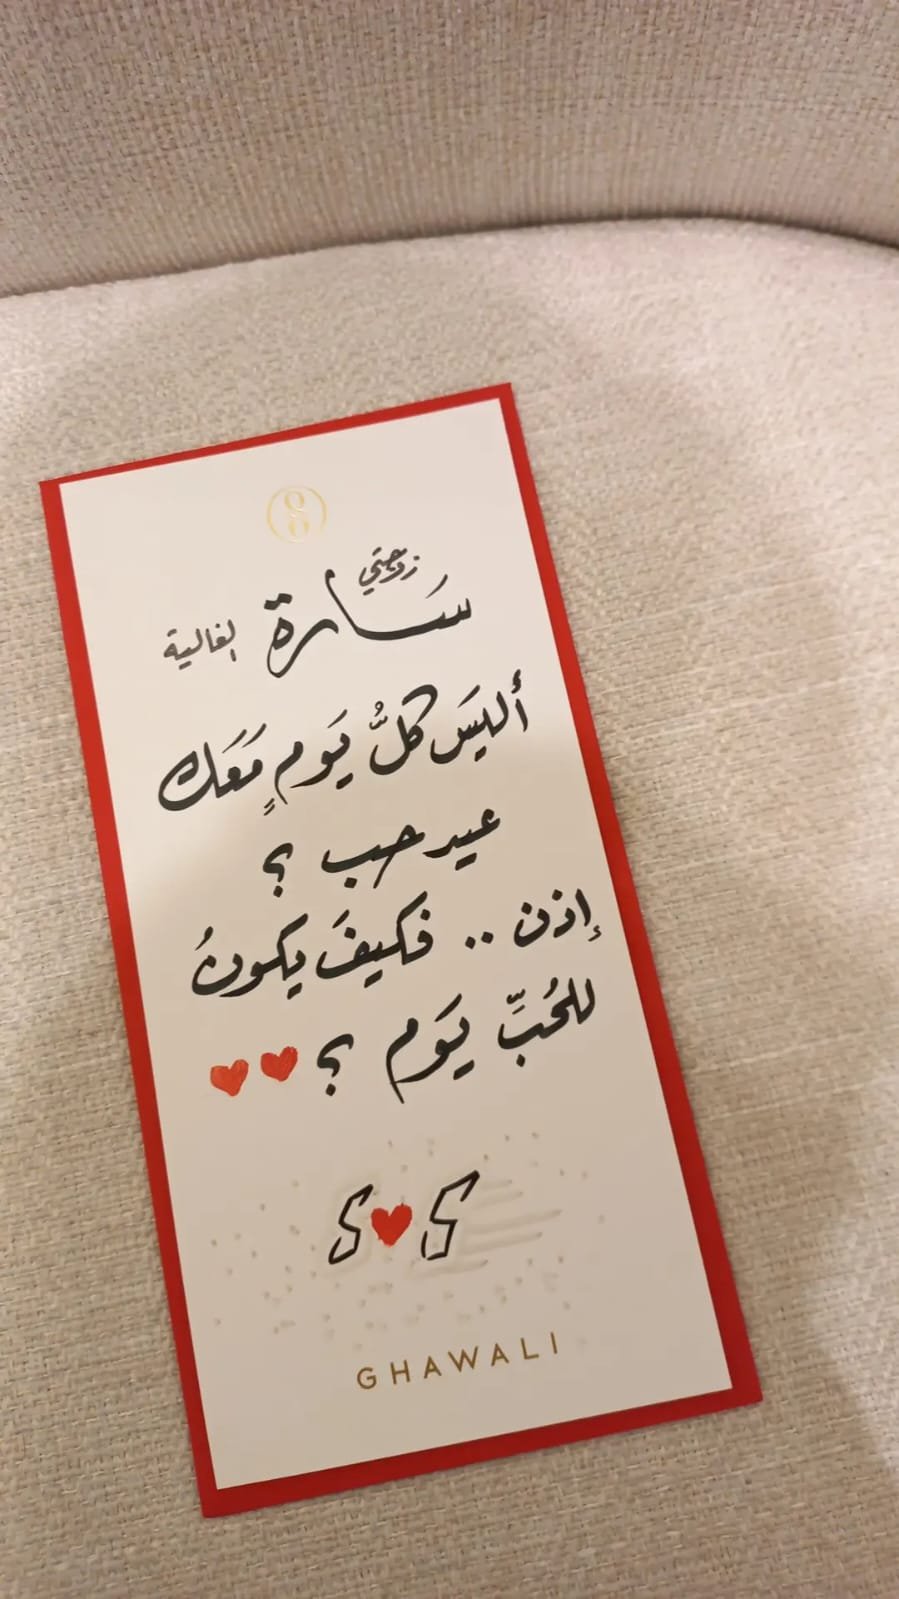 زوجتي
سَارة الغالية
أليسَ كلُّ يَومٍ مَعَك
عيد حب ؟
إذن .. فكيفَ يكونُ
للحُبِّ يَوم ؟ ♥♥
S♥S
GHAWALI